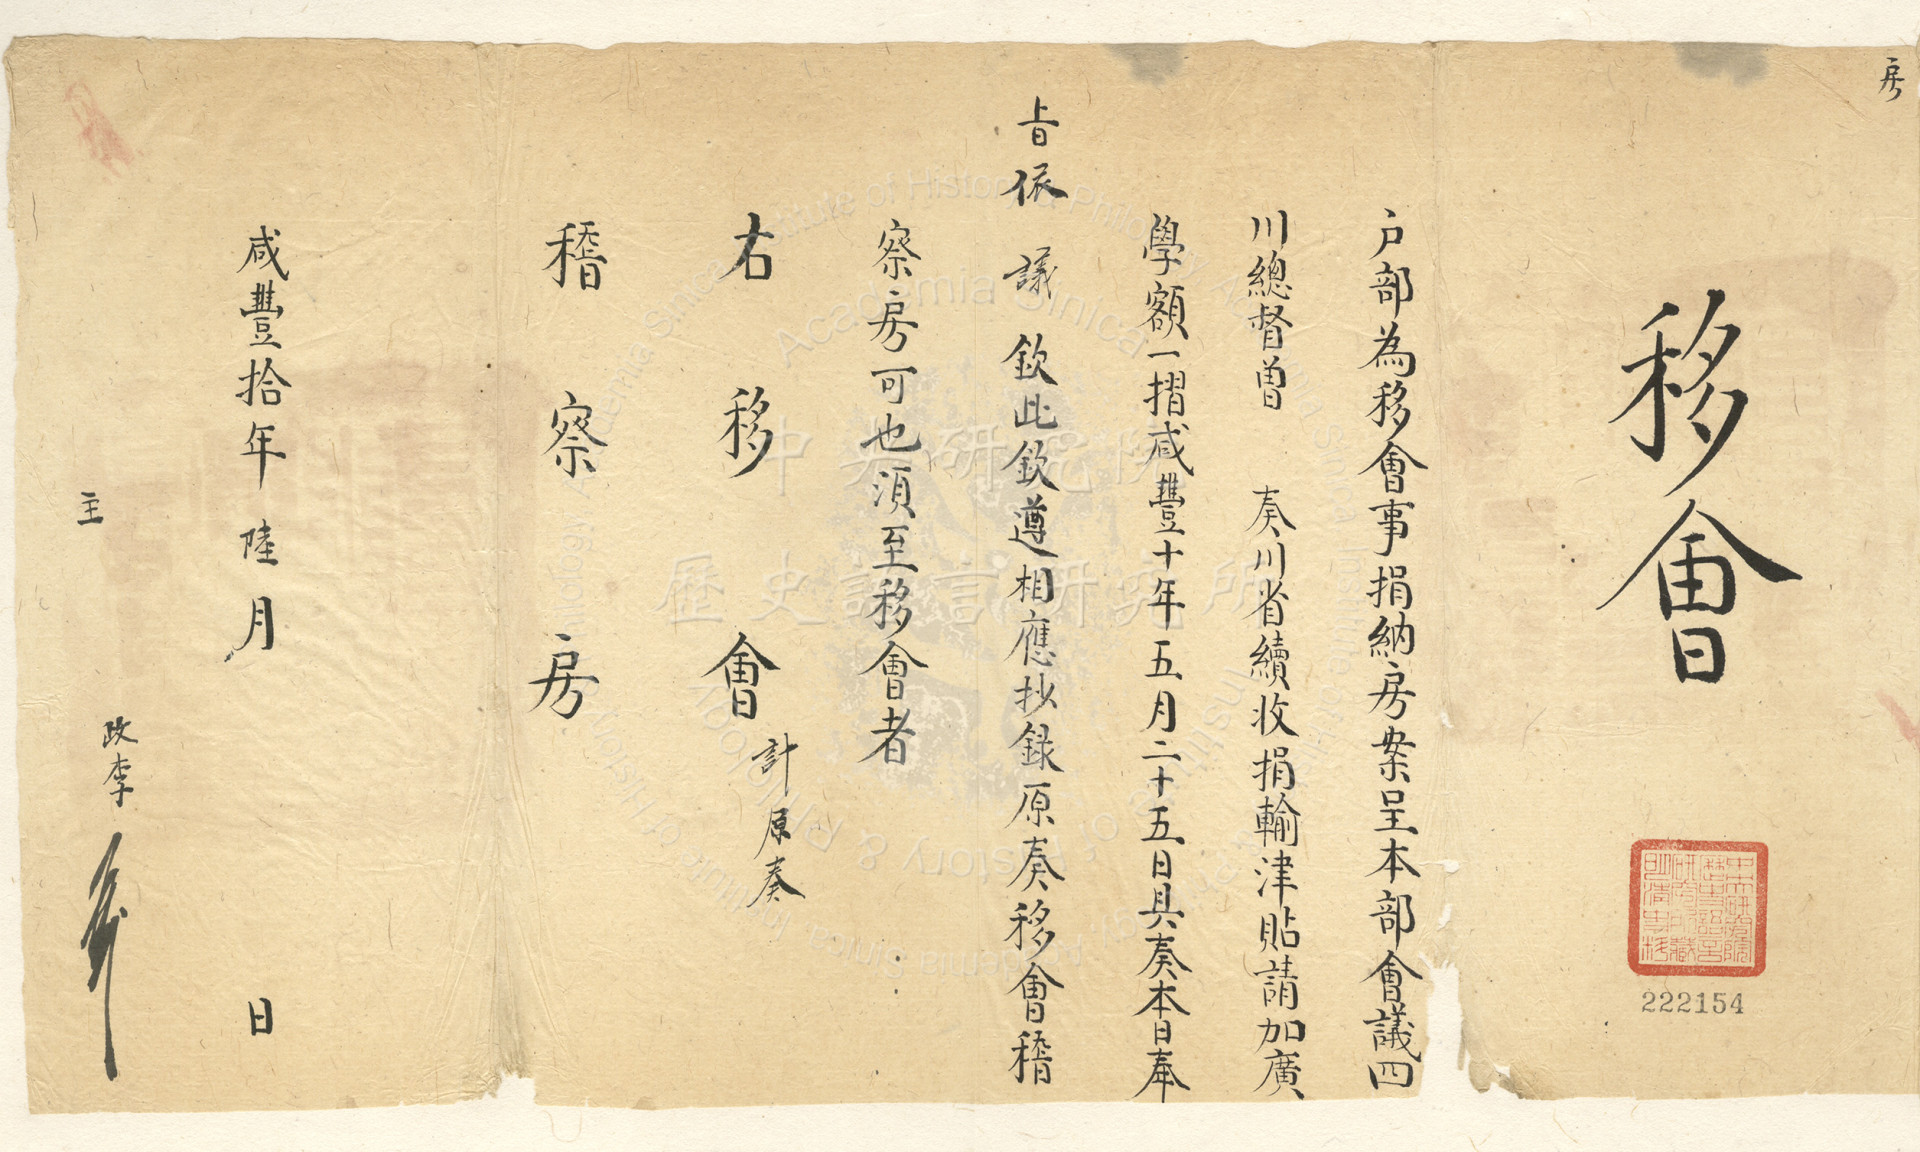 房
移會
中央研究院歷史語言研究所藏明清史料
222154
戶部為移會事捐納房案呈本部會議四
川總督曾 奏川省續收捐輸津貼請加廣
學額一摺咸豐十年五月二十五日具奏本日奉
旨依議欽此欽遵相應抄錄原奏移會稽
察房可也須至移會者
右移會
計原奏
稽察房
咸豐拾年陸月 日
主
政李
中央研究院
歷史語言研究所
Institute of History & Philology, Academia Sinica